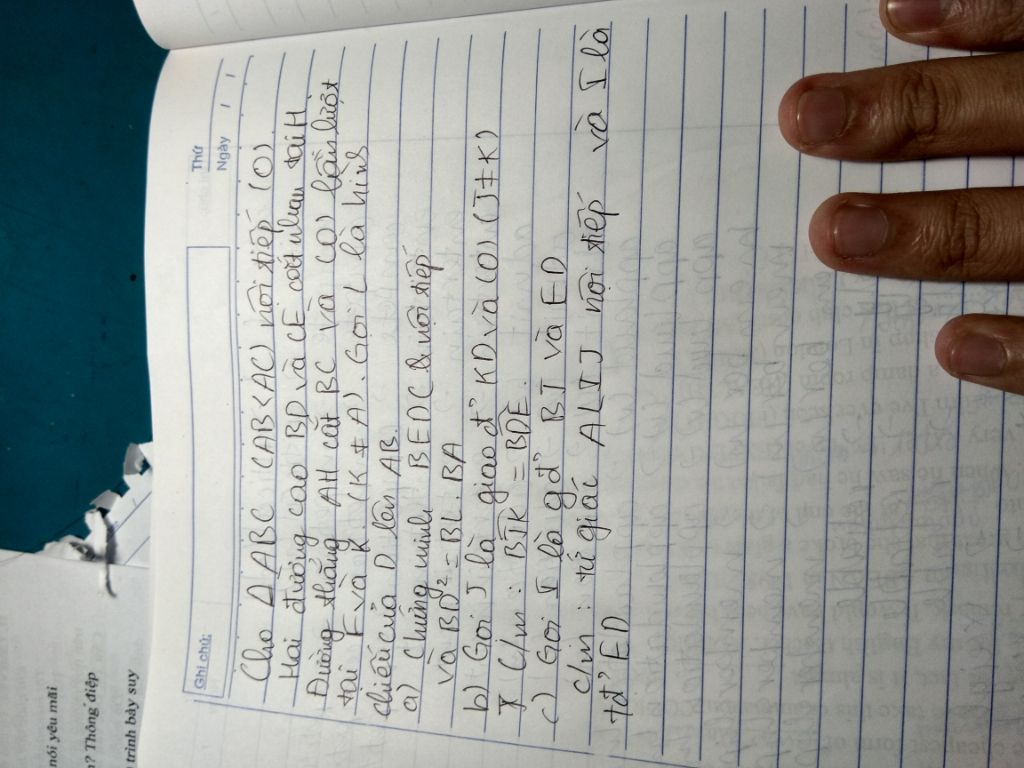 Ghi chú:
Thứ
Ngày / /
Cho ΔABC (AB<AC) nội tiếp (O)
Hai đường cao BD và CE cắt nhau tại H
Đường thẳng AH cắt BC và (O) lần lượt
tại F và K (K ≠ A). Gọi L là hình
chiếu của D lên AB.
a) Chứng minh BEDC nội tiếp
và BD² = BL.BA
b) Gọi J là giao đ' KD và (O) (J≠K)
C/m: BJK = BDE.
c) Gọi I là gđ' BJ và ED
c/m: tứ giác ALIJ nội tiếp và I là
tđ' ED
nói yêu mãi
? Thông điệp
trình bày suy